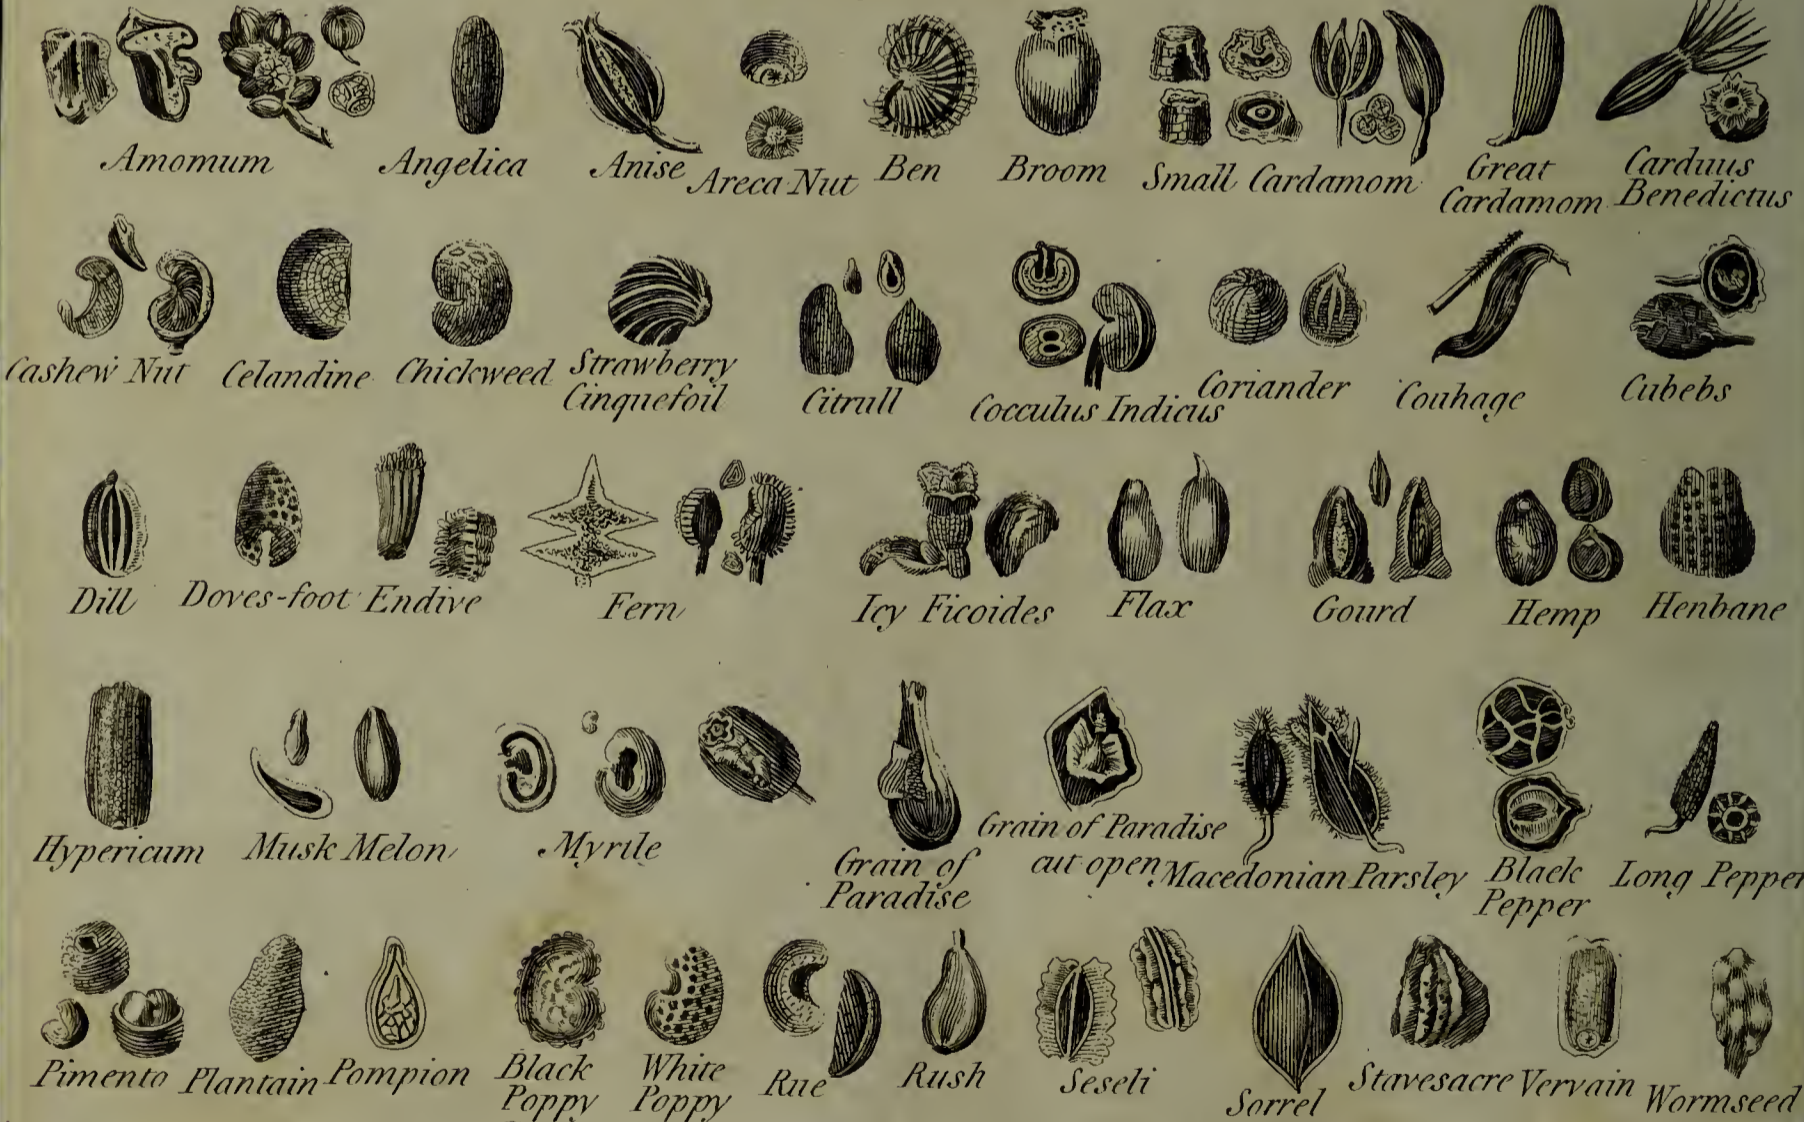 Amomum
Angelica
Anise
Areca Nut
Ben
Broom
Small Cardamom
Great
Cardamom
Carduus
Benedictus
Cashew Nut
Celandine
Chickweed
Strawberry
Cinquefoil
Citrull
Cocculus Indicus
Coriander
Couhage
Cubebs
Dill
Doves-foot
Endive
Fern
Icy Ficoides
Flax
Gourd
Hemp
Henbane
Hypericum
Musk Melon
Myrtle
Grain of
Paradise
Grain of Paradise
cut open
Macedonian Parsley
Black
Pepper
Long Pepper
Pimento
Plantain
Pompion
Black
Poppy
White
Poppy
Rue
Rush
Seseli
Sorrel
Stavesacre
Vervain
Wormseed